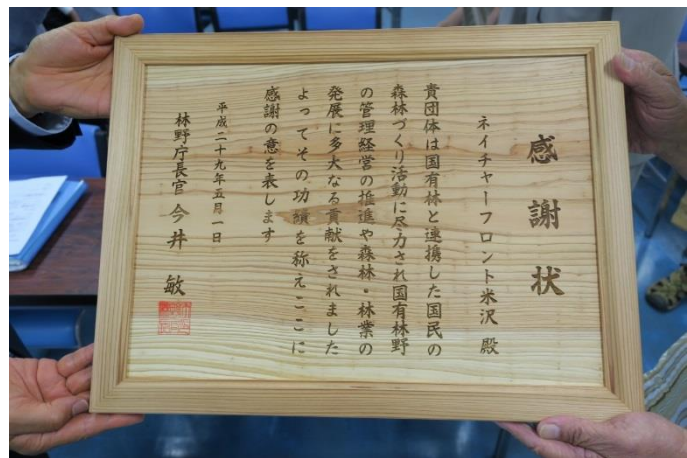 感謝状
ネイチャーフロント米沢 殿
貴団体は国有林と連携した国民の
森林づくり活動に尽力され国有林野
の管理経営の推進や森林・林業の
発展に多大なる貢献をされました
よってその功績を称えここに
感謝の意を表します
平成二十九年五月一日
林野庁長官 今井 敏